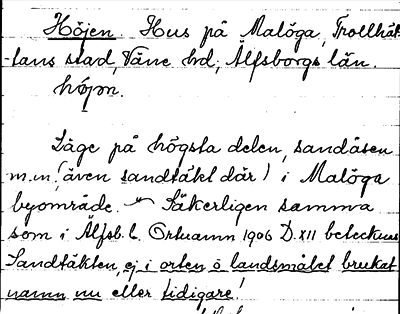 Höjen. Hus på Malöga, Trollhät-
tans stad, Väne hd, Älfsborgs län.
höjɒn.
Läge på högsta delen, sandåsen
m.m. (även sandtäkt där) i Malöga
byområde. Säkerligen samma
som i Älfsb. l. Ortnamn 1906 D. XII betecknas
Sandtäkten, ej i orten o landsmålet brukat
namn nu eller tidigare!